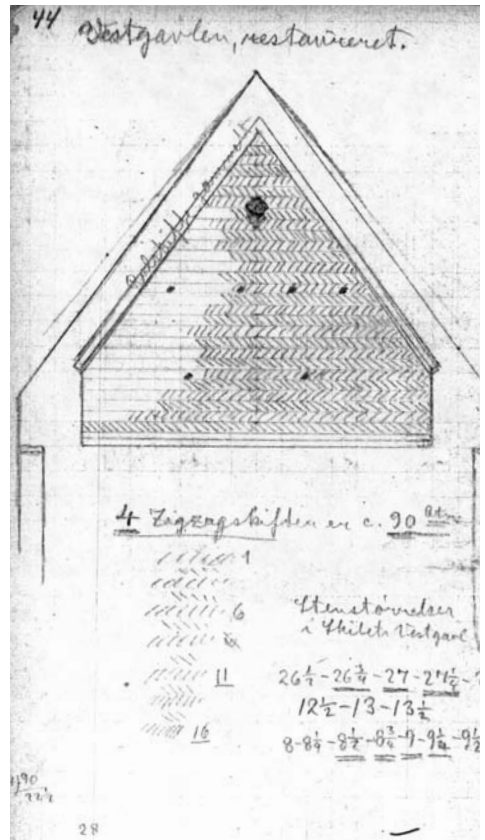 44
Vestgavlen, restaureret.
4 Zigzagskifter er c. 90
1
6
11
16
Stenstørrelser
i Skibets Vestgavl
26½-26¾-27-27½-
12½-13-13½
8-8¼-8½-8¾-9-9¼-9½
90
22½
28